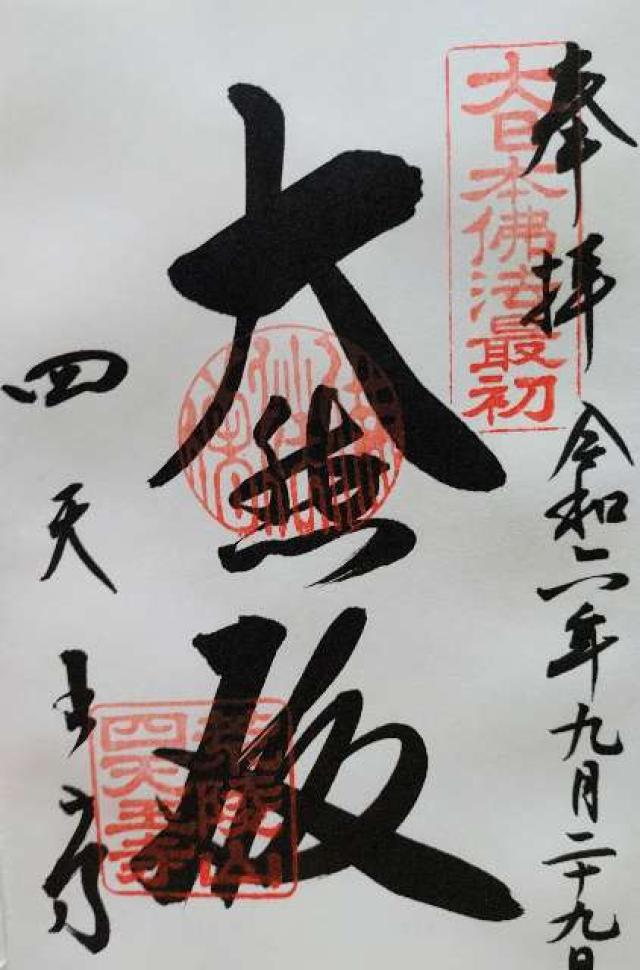 奉拝
大日本佛法最初
令和六年九月二十九日
大悲殿
四天王寺
荒陵山
四天王寺